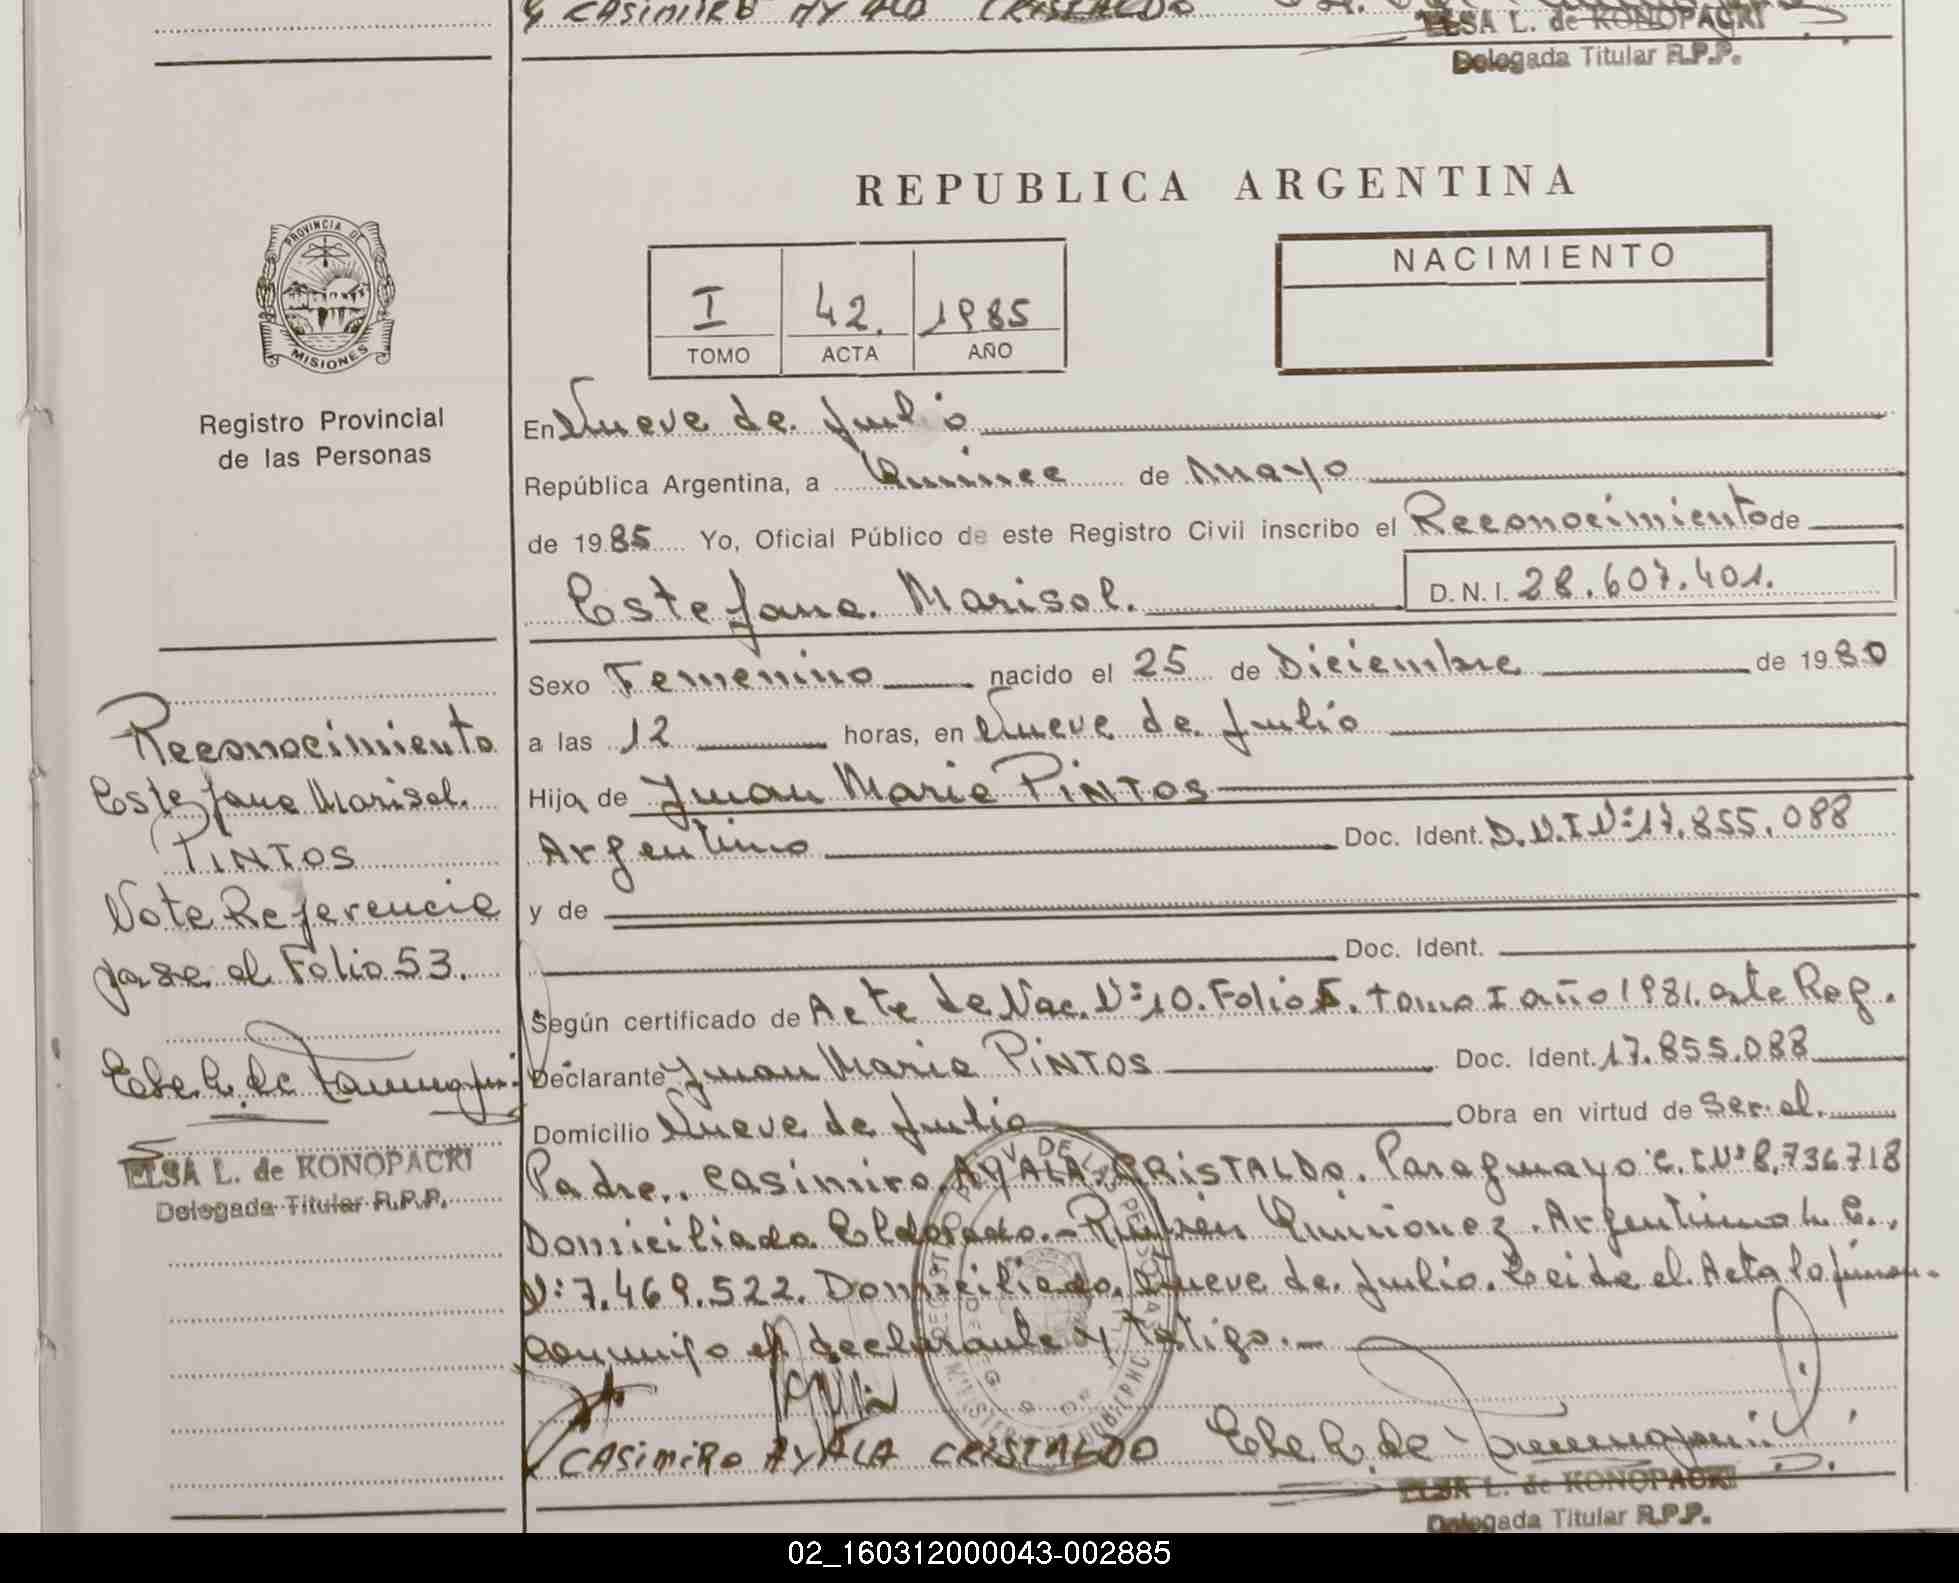 y CASIMIRO AYALA CRISTALDO
ELSA L. de KONOPACKI
Delegada Titular R.P.P.
REPUBLICA ARGENTINA
PROVINCIA DE
MISIONES
Registro Provincial
de las Personas
I 42. 1985
TOMO ACTA AÑO
NACIMIENTO
En Nueve de Julio
República Argentina, a Quince de Mayo
de 1985 Yo, Oficial Público de este Registro Civil inscribo el Reconocimiento de
Estefana Marisol.
D.N.I. 28.607.401.
Sexo Femenino nacido el 25 de Diciembre de 1980
a las 12 horas, en Nueve de Julio
Hija de Juan Maria PINTOS
Argentino Doc. Ident. D.N.I Nº 17.855.088
y de
Doc. Ident.
Según certificado de Acta de Nac. Nº 10. Folio 5. Tomo I año 1981. este Reg.
Declarante Juan Maria PINTOS Doc. Ident. 17.855.088
Domicilio Nueve de Julio Obra en virtud de Ser el
Padre.. Casimiro AYALA CRISTALDO. Paraguayo C.I Nº 8.736718
Domiciliado Eldorado.- Rubén Quiñonez. Argentino L.E.
Nº 7.469.522. Domiciliado Nueve de Julio. Leida el Acta la firman
conmigo el declarante y testigo.-
CASIMIRO AYALA CRISTALDO
ELSA L. de KONOPACKI
Delegada Titular R.P.P.
Reconocimiento
Estefana Marisol
PINTOS
Nota Referencia
pase al Folio 53.
ELSA L. de KONOPACKI
Delegada Titular R.P.P.
02_160312000043-002885